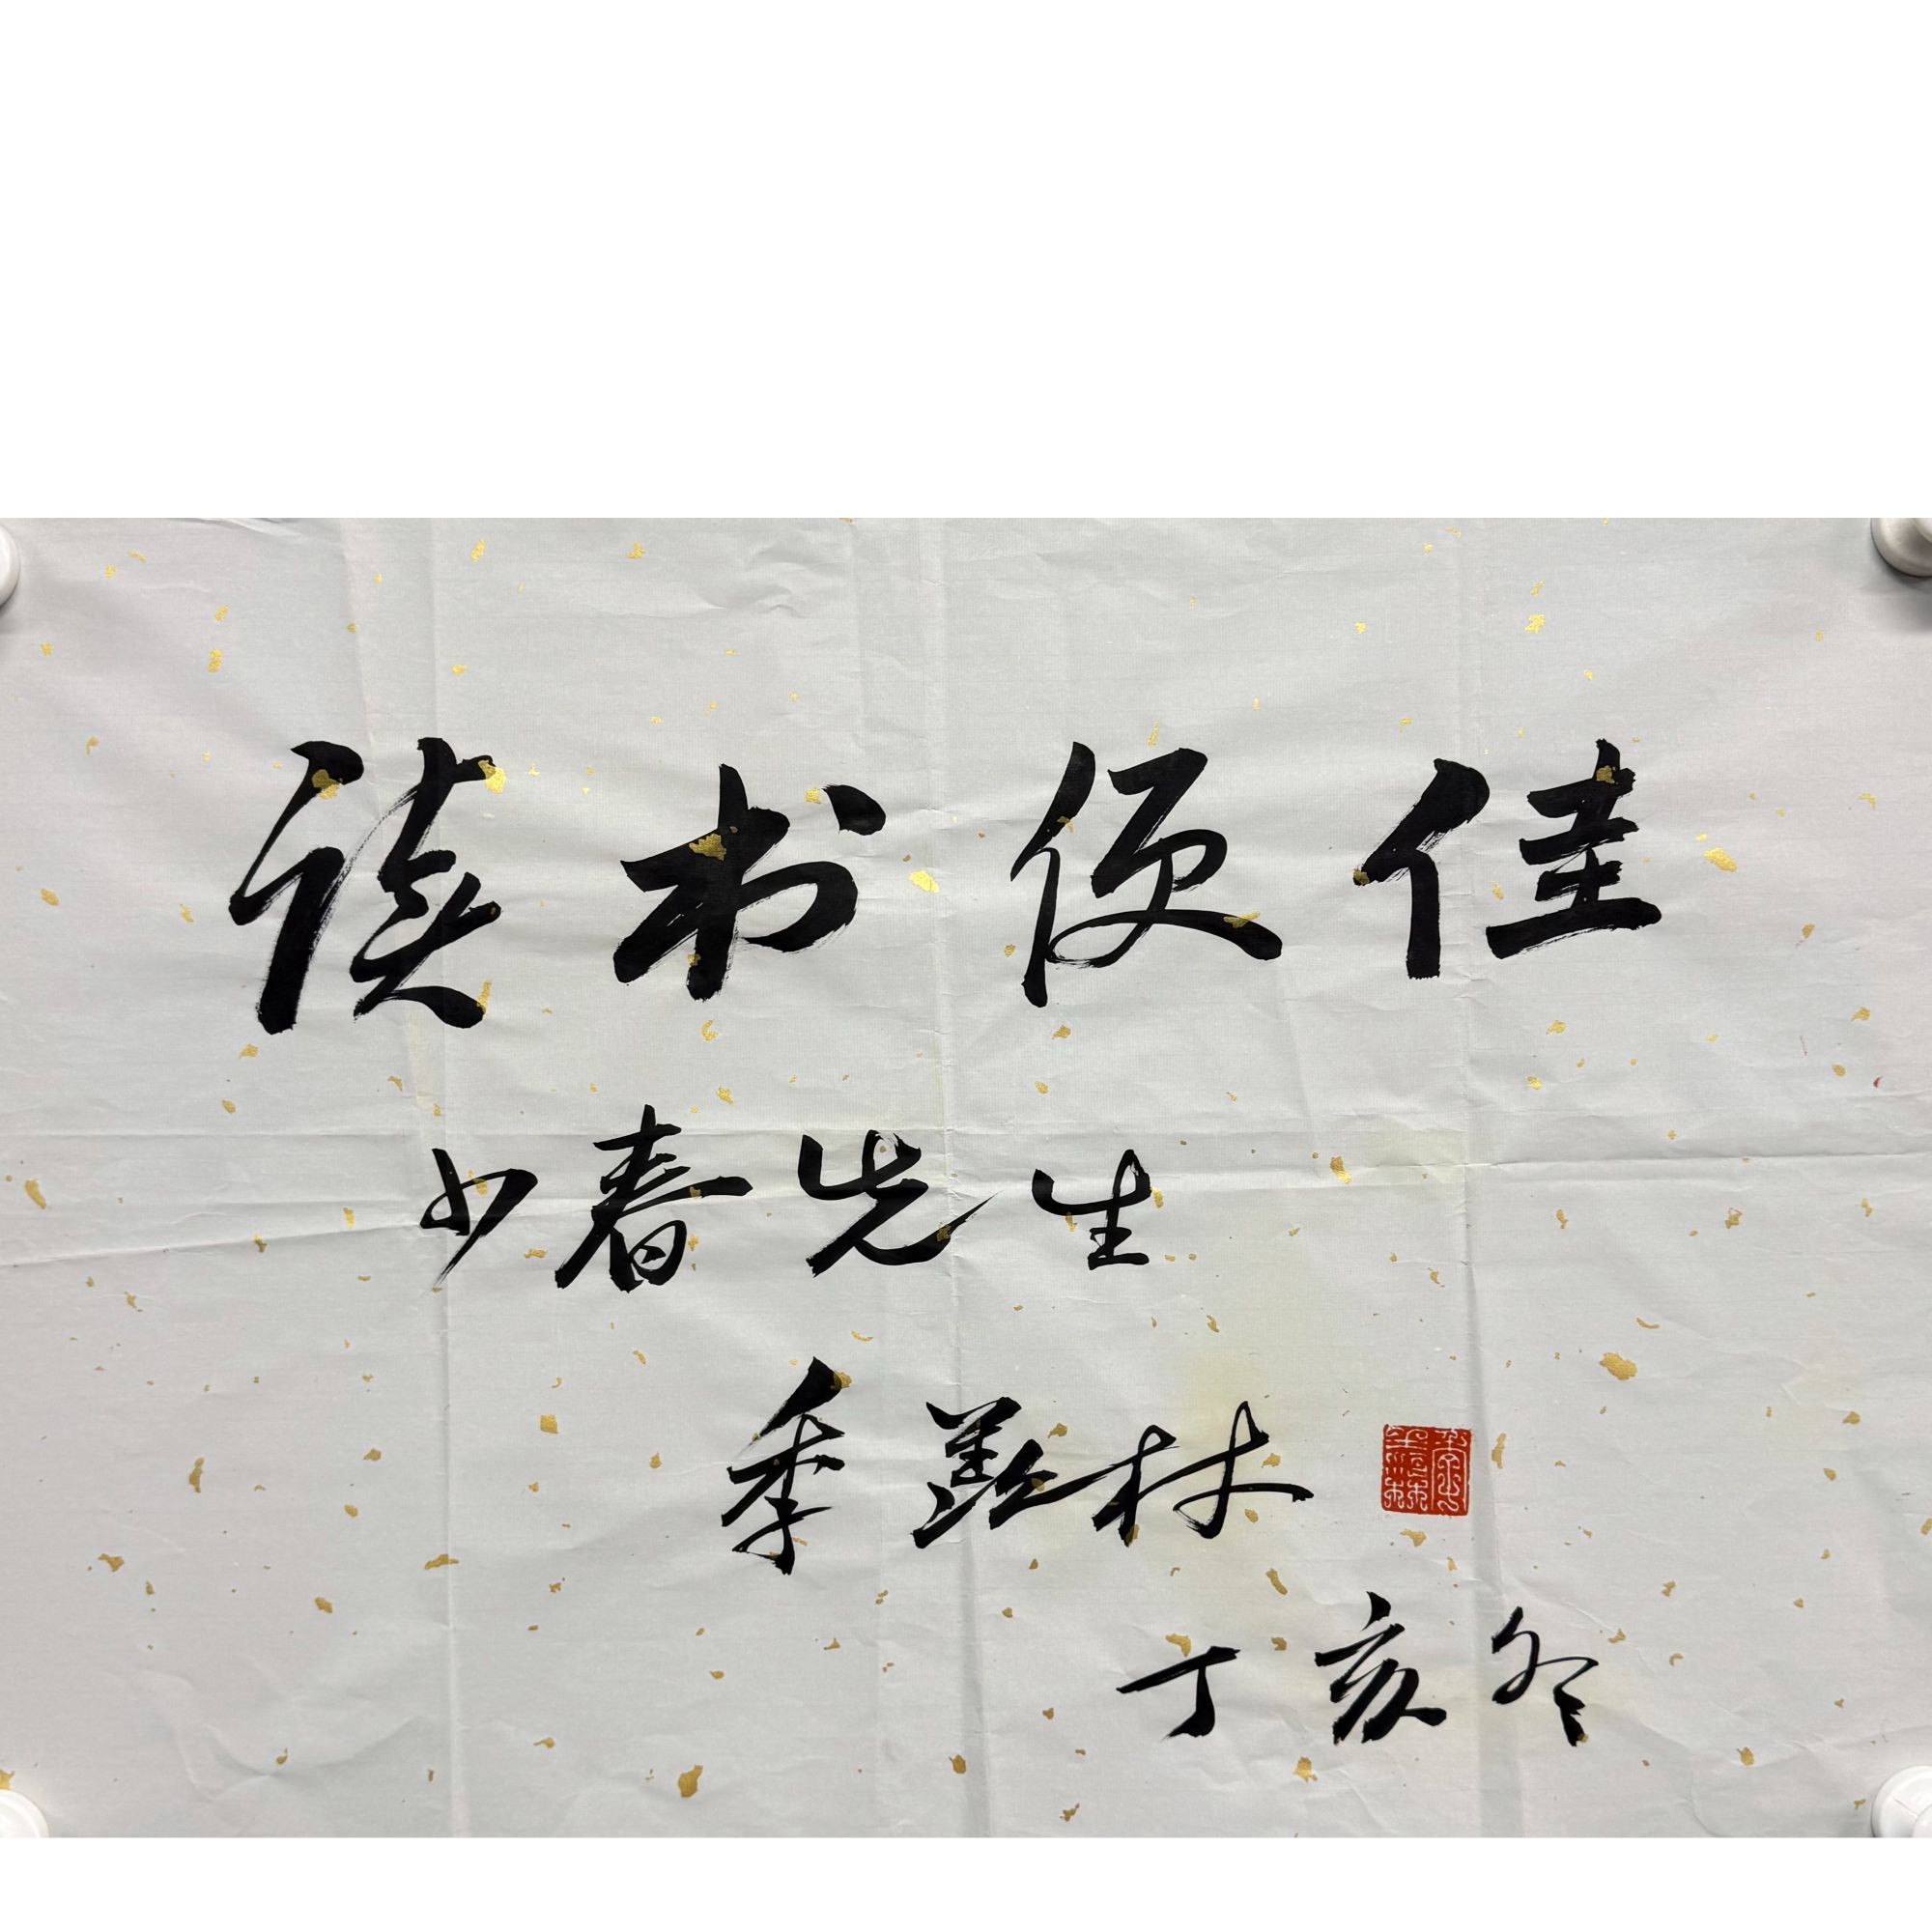 读书便佳
少春先生
季羡林
丁亥冬